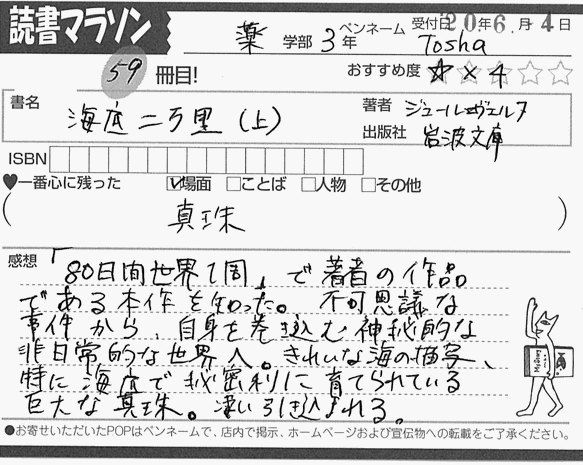 読書マラソン
薬 学部 3年
ペンネーム Tosha
受付日 '20年6.月 4日
59 冊目!
おすすめ度 ☆×4☆☆
書名 海底二万里(上)
著者 ジュール=ヴェルヌ
出版社 岩波文庫
ISBN
♥一番心に残った ☑場面 □ことば □人物 □その他
( 真珠 )
感想 「80日間世界1周」で著者の作品
である本作を知った。不可思議な
事件から、自身を巻き込む神秘的な
非日常的な世界へ。きれいな海の描写、
特に海底で秘密利に育てられている
巨大な真珠。凄い引き込まれる。
●お寄せいただいたPOPはペンネームで、店内で掲示、ホームページおよび宣伝物への転載をご了承ください。